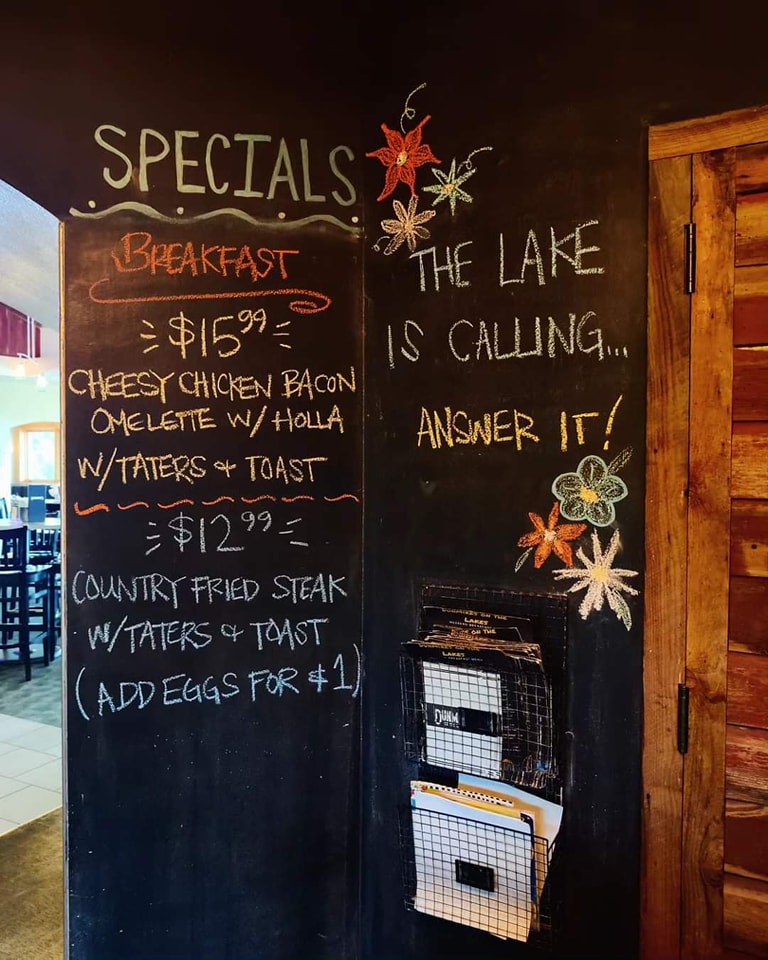 SPECIALS
BREAKFAST
$15.99
CHEESY CHICKEN BACON
OMELETTE W/ HOLLA
W/TATERS & TOAST
$12.99
COUNTRY FRIED STEAK
W/TATERS & TOAST
(ADD EGGS FOR $1)
THE LAKE
IS CALLING...
ANSWER IT!
ON THE
LAKE
ON THE
LAKE